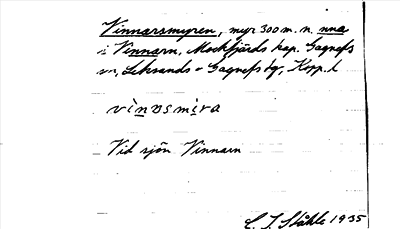 Vinnarsmyren, myr 300 m. n. nna
i Vinnarn, Mockfjärds kap. Gagnefs
sn, Leksands o Gagnefs tg, Kopp. l
vìnɒsmi̮ra
Vid sjön Vinnarn
C. I. Ståhle 1935